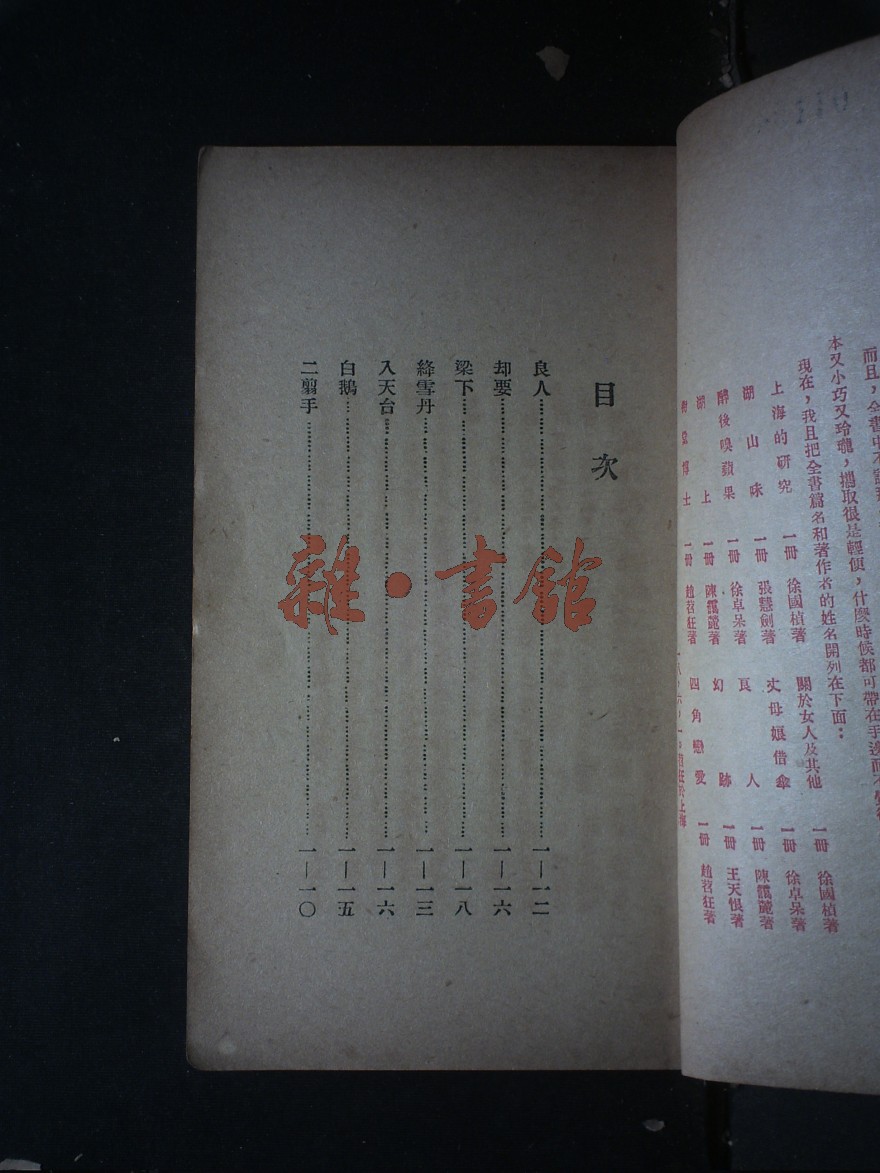 本又小巧又玲瓏，攜取很是輕便，什麼時候都可帶在手邊而不
現在，我且把全書篇名和著作者的姓名開列在下面：
上海的研究 一冊 徐國楨著 關於女人及其他 一冊 徐國楨著
湖山味 一冊 張慧劍著 丈母娘借傘 一冊 徐卓呆著
醉後嗅蘋果 一冊 徐卓呆著 良人 一冊 陳靄麓著
湖上 一冊 陳靄麓著 幻跡 一冊 王天恨著
博士 一冊 趙苕狂著 四角戀愛 一冊 趙苕狂著
目次
良人 一—一二
却要 一—一六
梁下 一—一八
絳雪丹 一—一三
入天台 一—一六
白鵝 一—一五
二翦手 一—一〇
雜·書館